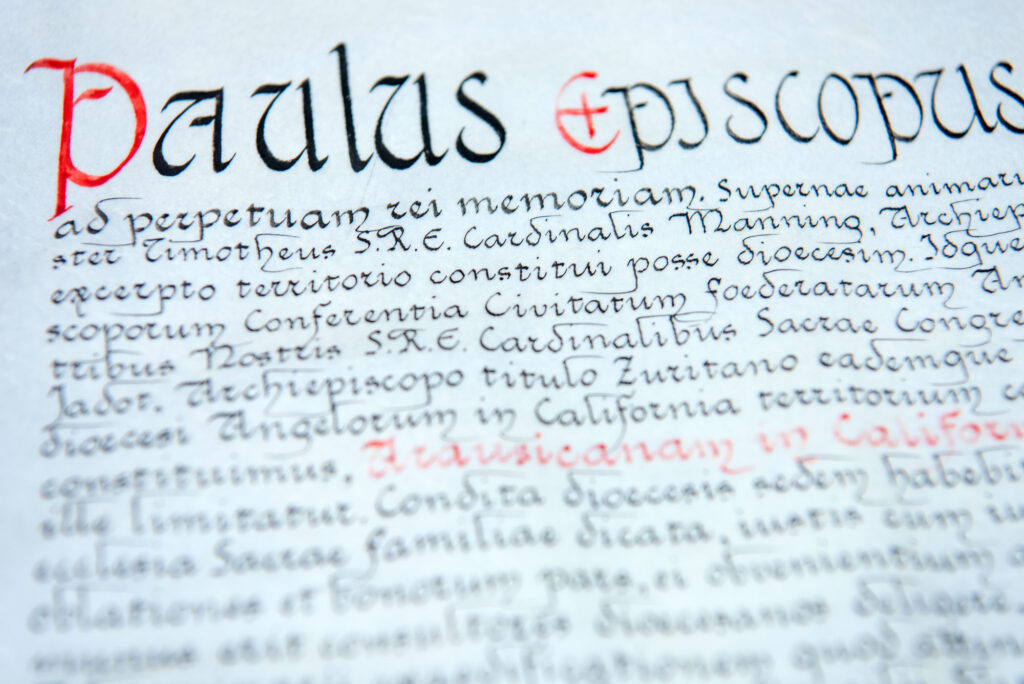 Paulus Episcopus
ad perpetuam rei memoriam. Supernae animaru
ster Timotheus S.R.E. Cardinalis Manning, Archiep
excerpto territorio constitui posse dioecesim. Idque
scoporum Conferentia Civitatum foederatarum An
tribus Nostris S.R.E. Cardinalibus Sacrae Congre
Jadot, Archiepiscopo titulo Zuritano eademque
dioecesi Angelorum in California territorium co
constituimus, Arausicanam in Californ
ille limitatur. Condita dioecesis sedem habebi
ecclesia Sacrae familiae dicata, iustis cum iu
oblationes et bonorum pars, ei obvenientium
munus erit consultores dioecesanos deligere,
aedificationem quod attin